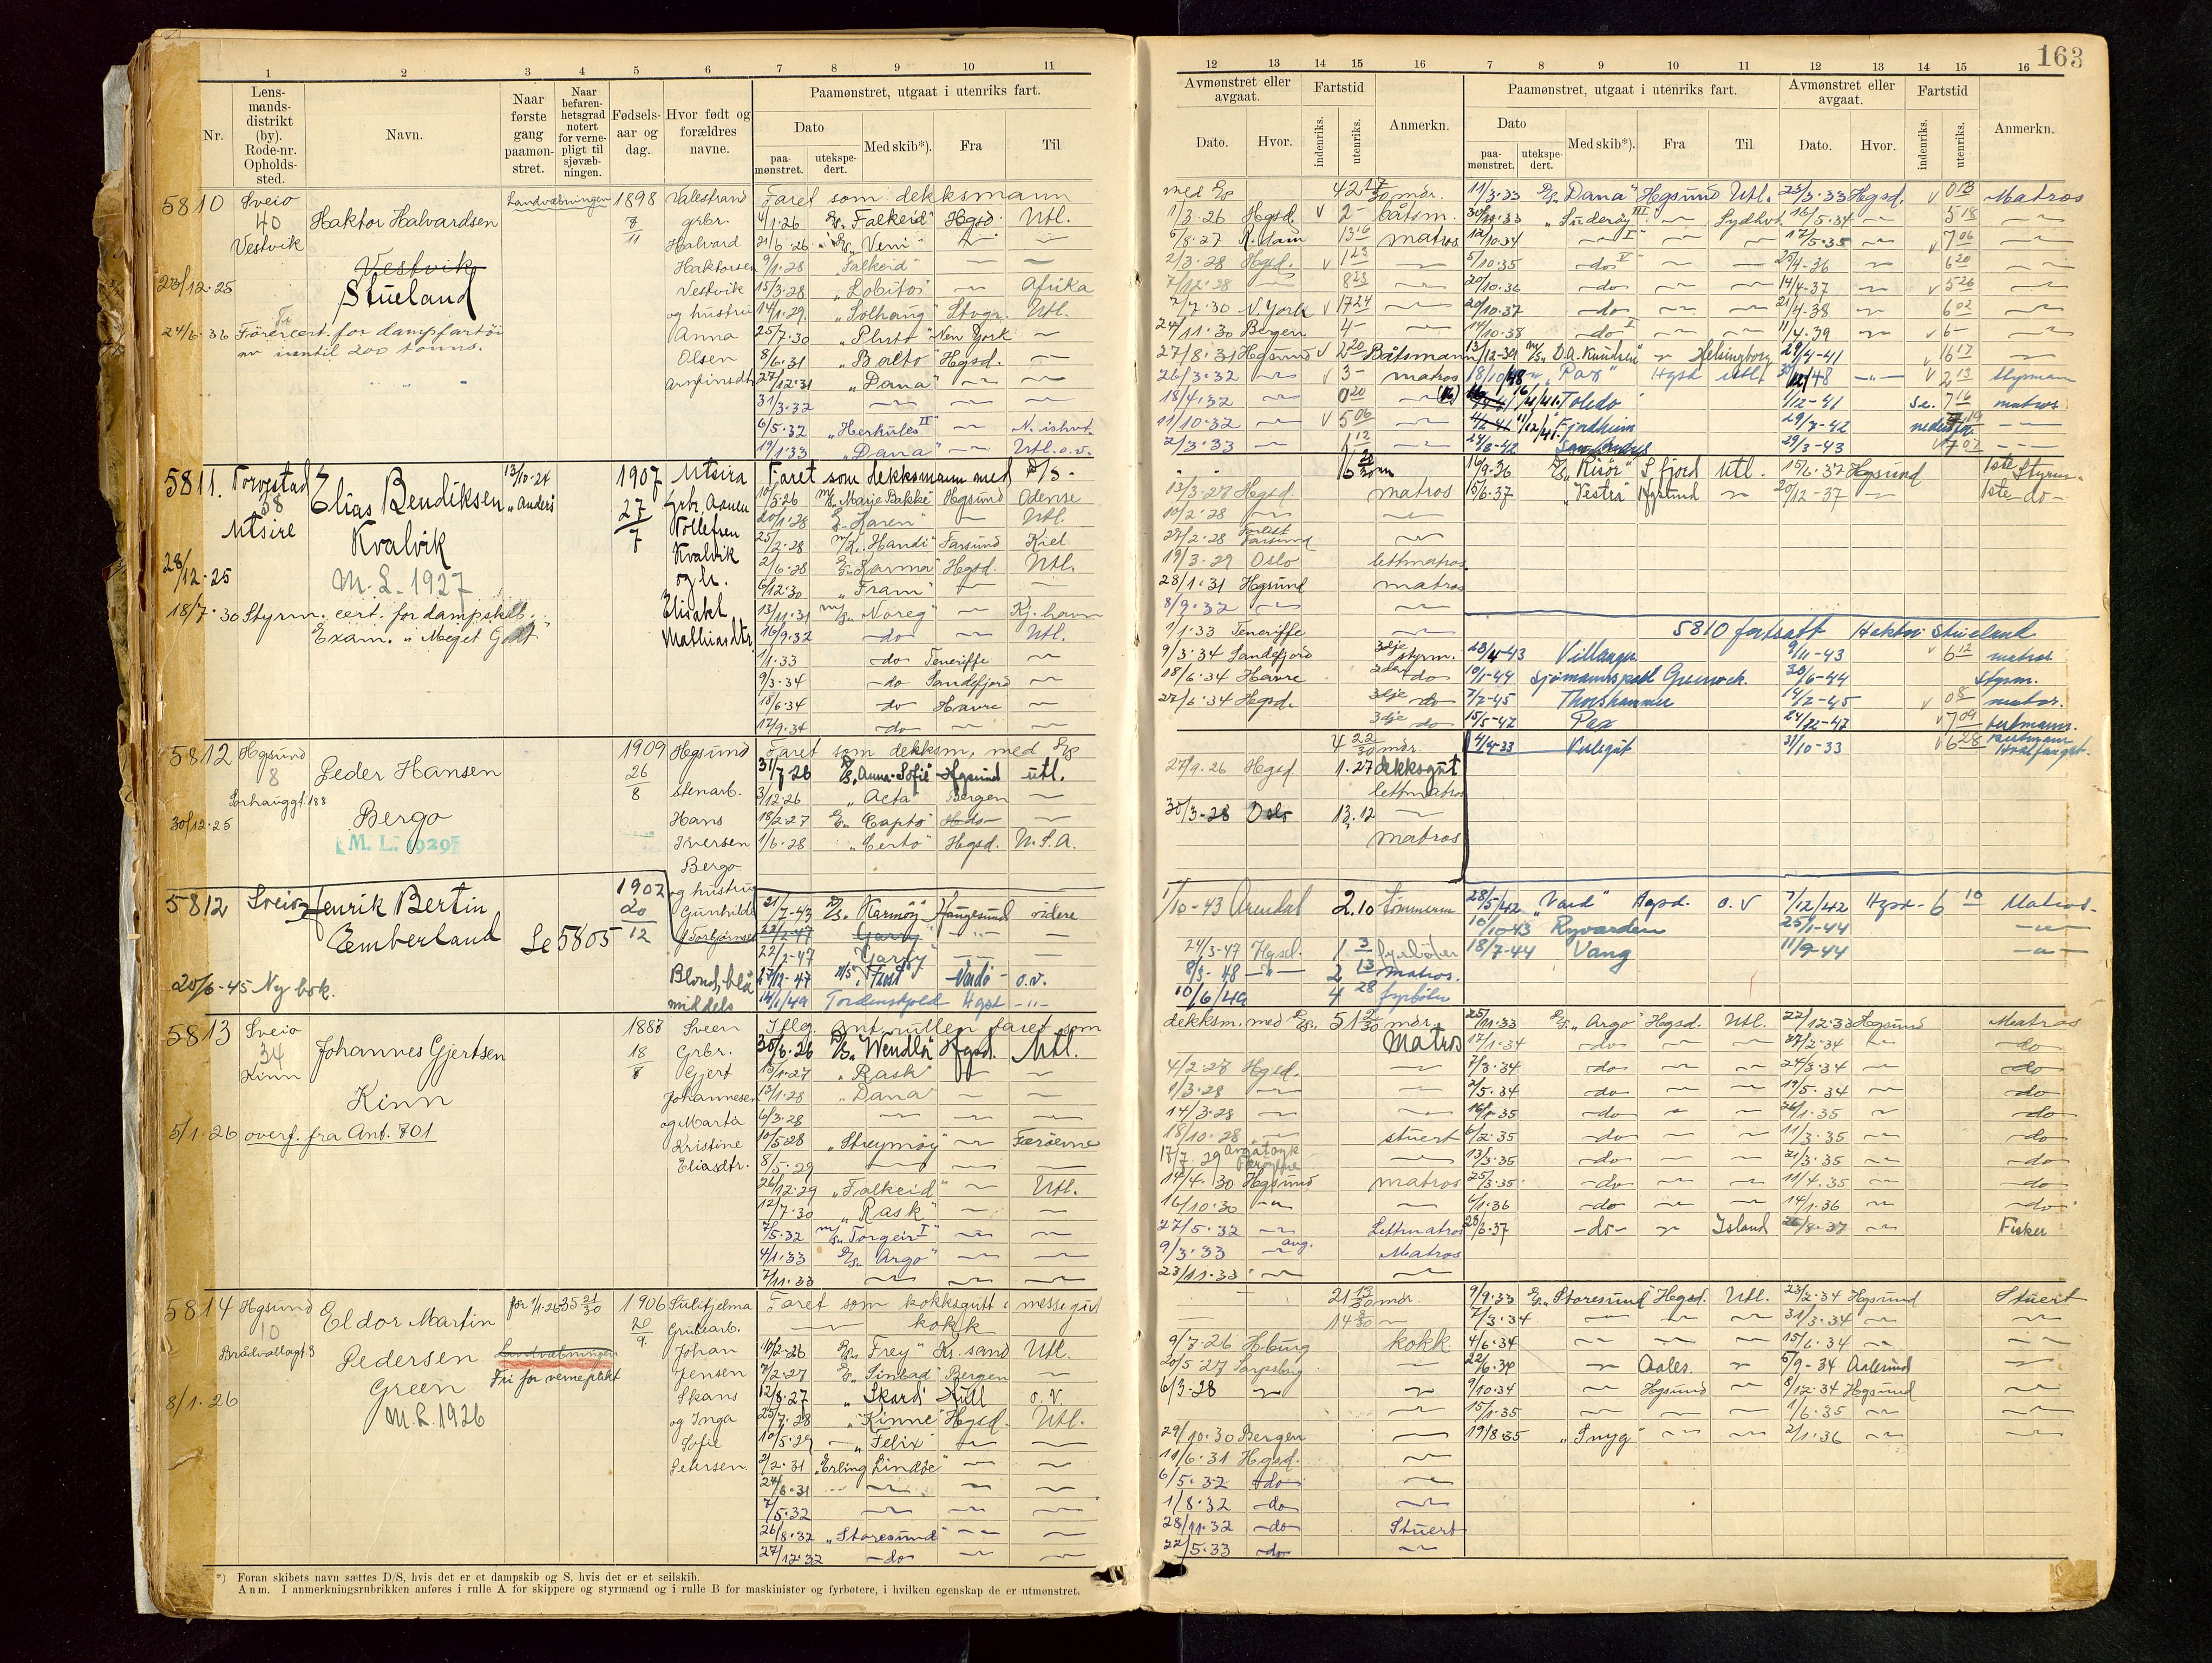 163
1 2 3 4 5 6 7 8 9 10 11
12 13 14 15 16 7 8 9 10 11 12 13 14 15 16
Nr.
Lens-
mands-
distrikt
(by).
Rode-nr.
Opholds-
sted.
Navn.
Naar
første
gang
paamøn-
stret.
Naar
befaren-
hetsgrad
notert
for verne-
pligt til
sjøvæb-
ningen.
Fødsels-
aar og
dag.
Hvor født og
forældres
navne.
Paamønstret, utgaat i utenriks fart.
Dato
paa-
mønstret.
utekspe-
dert.
Med skib*).
Fra
Til
Avmønstret eller
avgaat.
Dato.
Hvor.
Fartstid
indenriks.
utenriks.
Anmerkn.
Paamønstret, utgaat i utenriks fart.
Dato
paa-
mønstret.
utekspe-
dert.
Med skib*).
Fra
Til
Avmønstret eller
avgaat.
Dato.
Hvor.
Fartstid
indenriks.
utenriks.
Anmerkn.
5810 Sveio
40
Vestvik
Haktor Halvardsen
Vestvik
Stueland
Landvæbningen
1898
8/11
Valestrand
grbr.
Halvard
Haktorsen
Vestvik
og hustru
Anna
Olsen
23/12.25
24/6.36 Førercert. for dampfartøi
av inntil 200 tonns.
Faret som dekksmann
4/1.26 "Falkeid" Hgsd. Utl.
21/6.26 "Veni"
9/1.28 "Falkeid"
15/3.28 "Lobitos" Afrika
14/1.29 "Solhaug" Stvgr. Utl.
25/7.30 New York
8/6.31 "Balto" Hgsd.
27/12.31 "Dana"
31/3.32
6/5.32 "Herkules II"
19/1.33 "Dana" Utl. o.v.
1/3.26 Hgsd. 2 båtsm.
6/8.27 R.dam 13 16 matros
2/3.28 Hgsd. 1 23
7/12.28 8 23
2/7.30 N.York 17 24
24/11.30 Bergen 4
27/8.31 Hgsund 2 20 Båtsmann
26/3.32 3 matros
18/4.32 0 20
11/10.32 5 06
2/3.33 1 12
11/3.33 "Dana" Hgsund Utl. 23/3.33 Hgsd. 0 13 Matros
30/11.33 "Suderøy III" Sydhvt. 16/5.34 5 18
12/10.34 17/5.35 7 06
5/10.35 do 25/4-36 6 20
20/10.36 do 14/4-37 5 26
20/10.37 do 21/4-38 6 02
14/10.38 do 11/4.39 6
13/12-39 "D.A. Knudsen" Helsingborg 29/4-41 16 17
18/10/48 "Pax" Hgsd utl. 48 2 13 styrman
Toledo 1/12-41 7 16 matros
Fjordheim 29/7-42
24/8-42 29/3-43 7 02
5811. Torvestad
38
Utsire
Elias Bendiksen
Kvalvik
M.L. 1927
13/10-24
"Anders"
1907
27/7
Utsira
Tollefsen
Kvalvik
og h.
Elisabt
Mathiasdtr.
28/12.25
18/7.30 Styrm. cert. for dampskib.
Exam. "Meget Godt"
Faret som dekksmann med D/S
10/5.26 "Marie Bakke" Hgsund Odense
20/1.28 "Karen" Utl.
25/2.28 "Handi" Farsund Kiel
2/6.28 "Karma" Hgsd. Utl.
6/12.30 "Fram"
13/11.31 "Noreg" Kj.havn
16/9.32 do Utl.
1/1.33 do Teneriffe
9/3.34 do Sandefjord
18/6.34 do Havre
17/9.34 do
13/3.27 Hgsd. matros
10/2.28
27/2.28 Forlist Farsund
19/3.29 Oslo lettmatros
28/1.31 Hgsund matros
8/9.32
1/1.33 Teneriffe
9/3.34 Sandefjord 3dje styrm.
18/6.34 Havre 2den do
27/6.34 Hgsd. 3dje do
3dje do
16/9.36 "Risör" S.fjord Utl. 15/6.37 Hgsund 1ste Styrm.
15/6.37 "Vestra" Hgsund 20/12-37 1ste do
5810 fortsatt Haktor Stueland
28/4-43 Villanger 9/11-43 6 12 matros
10/1-44 Greenock. 30/6-44 styrm.
7/2-45 Thorshammer 14/2-45 0 8 matros.
15/5-47 Pax 24/12-47 7 09
31/10-33 6 28 Hvalfangst.
5812 Hgsund
8
Sørhauggt. 188
Peder Hansen
Bergo
M. L. 1929
30/12.25
1909
26/8
Hgsund
stenarb.
Hans
Iversen
Bergo
og hustru
Gunhilde
Torbjørnsen
Faret som dekksm. med
31/7.26 "Anna Sofie" Hgsund utl.
3/12.26 "Acta" Bergen
18/2.27 "Capto" do
1/6.28 "Certo" Hgsd. U.S.A.
4 22/30 mdr.
27/9.26 Hgsd. 1.27 dekksgut
lettmatros
30/3-28 Oslo 13.12
matros
5812 Sveio
Henrik Bertin
Emberland
Se 5805
1902
20/12
Blond, blå
middels
20/6-45 Ny bok.
21/7-43 "Karmøy" Haugesund videre
22/2-47 Garsy
22/2-47 Garsy
17/12-47 "Frost" Vardø o.v.
14/1/49 Tordenskjold Hgsd
1/10-43 Arendal 2.10 Tømmerm
24/3-47 Hgsd. 1 3 fyrbøter
8/3-48 2 13 matros.
10/6/49 4 28 fyrbøter
28/5/42 "Vard" Hgsd. o.v 7/12/42 Hgsd. 6 10 Matros
10/10-43 Ryvarden 25/1-44
18/7-44 Vang 11/9-44
5813 Sveio
34
Kinn
Johannes Gjertsen
Kinn
1887
18/8
Sveen
Grbr.
Gjert
Johannesen
og Marta
Kristine
Eliasdtr.
5/1.26 overf. fra Ant. 701
Iflg. ant.rullen faret som
dekksm. med 51 2/30 mdr.
30/6.26 "Wendla" Hgsd. Utl. Matros
13/1.27 "Rask"
13/1.28 "Dana"
6/3.28
10/5.28 "Streymöy" Færöerne
8/5.29
26/12.29 "Falkeid" Utl.
12/7.30 "Rask"
7/5.32 "Torgeir I"
4/1.33 "Argo"
7/11.33
4/2.27 Hgsd.
1/3.28
14/3.28
18/10.28 stuert
17/7.29
14/4.30 Hgsund matros
16/10.30
27/5.32 Lettmatros
9/3.33 Matros
23/11.33
25/11.33 "Argo" Hgsd. Utl. 22/12.33 Hgsund Matros
17/1.34 do 27/2.34 do
7/3.34 do 24/3.34 do
2/5.34 do 19/5.34 do
16/1.35 do 26/1.35 do
6/2.35 do 11/3.35 do
13/3.35 do 21/3.35 do
25/3.35 do 11/4.35 do
6/1.36 do 14/1.36 do
28/6.37 do Island 8.37 Fisker
5814 Hgsund
10
Eldor Martin
Pedersen
Green
M.L. 1926
før 1/1.26 35 21/30
Landvæbningen
Fri for verneplikt
8/1.26
1906
20/9
Sulitjelma
Grubearb.
Johan
Jensen
Skans
og Inga
Sofie
Petersen
Faret som kokksgutt & messegut
kokk
10/2-26 "Frey" Kr.sand Utl.
7/2-27 "Sinbad" Bergen
12/8.27 "Skard" Hull o.v.
25/7.28 "Kinne" Hgsd. Utl.
10/5.29 "Felix"
2/2.31 "Erling Lindöe"
24/6.31
7/5.32
26/8.32 "Storesund"
27/12.32 do
21 13/30 mdr.
9/7-26 H.burg kokk
20/5 27 Sarpsborg
6/3-28
29/10.30 Bergen
11/6.31 Hgsd.
6/5.32 do
1/8.32 do
28/11.32 do Stuert
22/5.33 do
9/9.33 "Storesund" Hgsd. Utl. 23/2.34 Hgsund Stuert
7/3.34 31/3.34
4/6.34 15/6.34
22/6.34 Aales. 5/9-34 Aalesund
9/10.34 Hgsund 8/12.34 Hgsund
15/1.35 1/6.35
19/8.35 "Snyg" 2/1.36
*) Foran skibets navn sættes D/S, hvis det er et dampskib og S, hvis det er et seilskib.
Anm. I anmerkningsrubrikken anføres i rulle A for skippere og styrmænd og i rulle B for maskinister og fyrbøtere, i hvilken egenskap de er utmønstret.